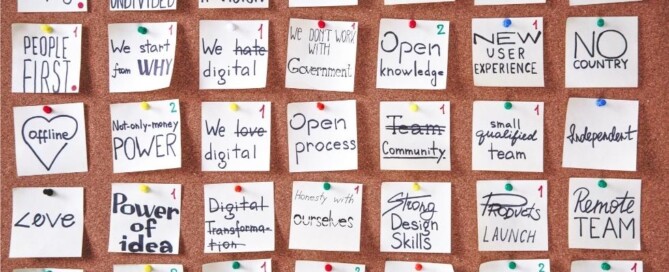 UNDIVIDED
1
1
PEOPLE
FIRST.
1
We start
from WHY
2
We hate
digital
1
WE DON'T WORK
WITH
Government
Open
knowledge
2
NEW
USER
EXPERIENCE
1
NO
COUNTRY
offline
Not-only-money
POWER
2
We love
digital
1
Open
process
1
Team
Community
1
small
qualified
team
1
Independent
Love
Power
of
idea
1
Digital
Transforma-
tion
1
Honesty with
ourselves
1
Strong
Design
Skills
Products
LAUNCH
1
Remote
TEAM